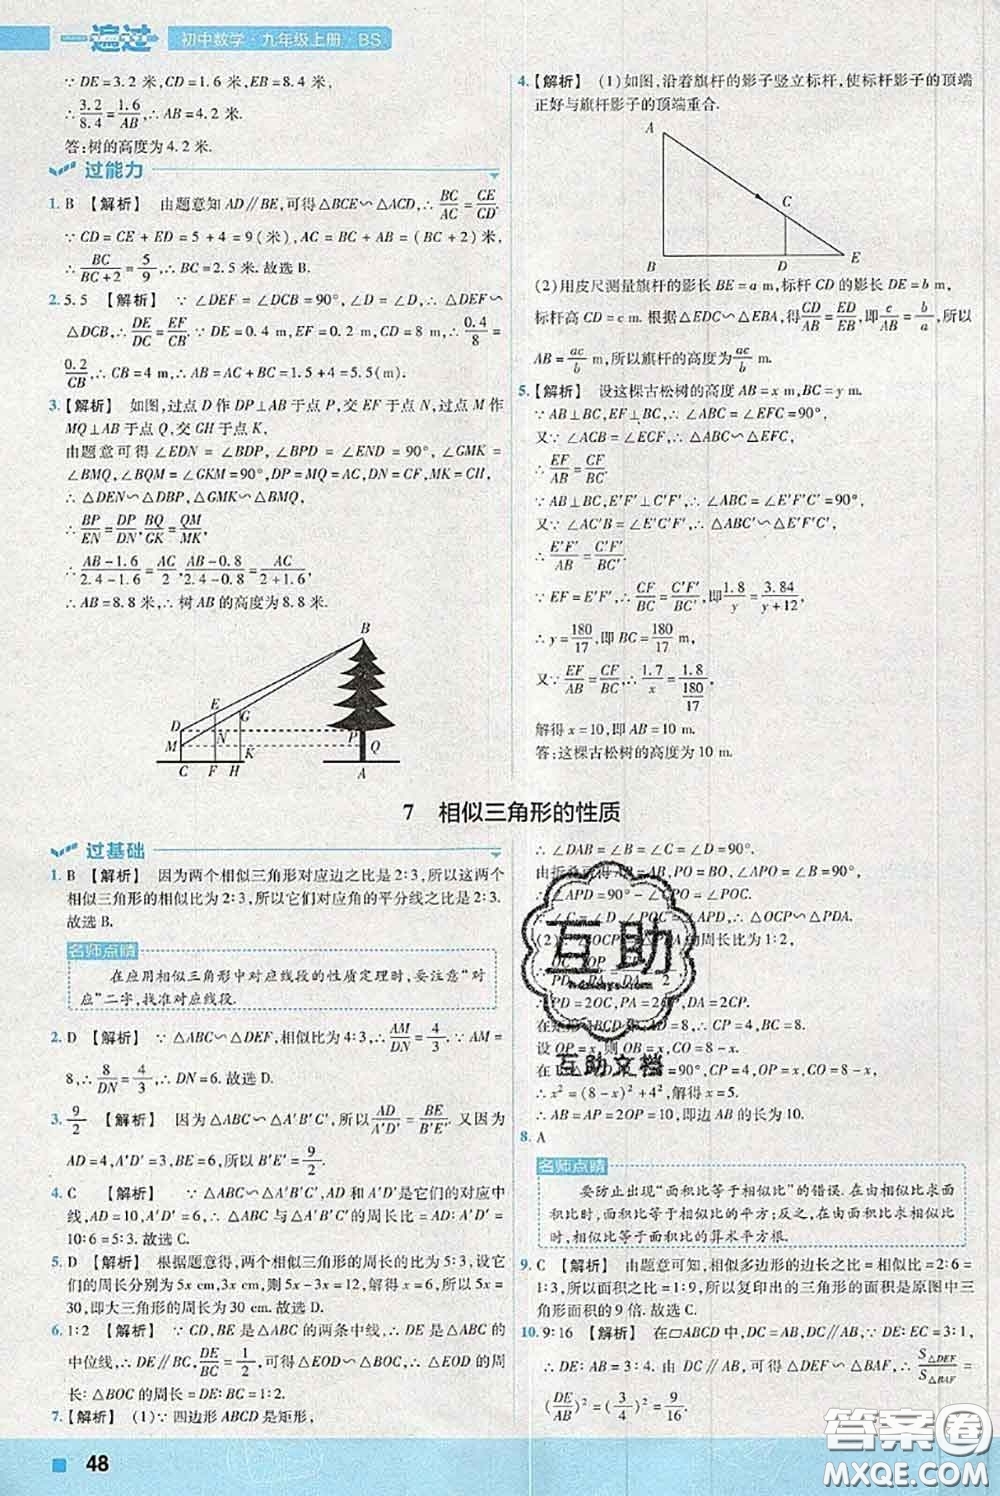 一遍过 初中数学·九年级上册·BS
∵DE=3.2 米,CD=1.6 米,EB=8.4 米,
∴3.2/8.4=1.6/AB,∴AB=4.2 米.
答:树的高度为 4.2 米.
过能力
1. B 【解析】 由题意知 AD∥BE,可得△BCE∽△ACD,∴BC/AC=CE/CD.
∵CD=CE+ED=5+4=9(米),AC=BC+AB=(BC+2)米,
∴BC/(BC+2)=5/9,∴BC=2.5 米.故选 B.
2. 5.5 【解析】 ∵∠DEF=∠DCB=90°,∠D=∠D,∴△DEF∽
△DCB,∴DE/DC=EF/CB.∵DE=0.4 m,EF=0.2 m,CD=8 m,∴0.4/8=
0.2/CB,∴CB=4 m,∴AB=AC+BC=1.5+4=5.5(m).
3.【解析】 如图,过点 D 作 DP⊥AB 于点 P,交 EF 于点 N,过点 M 作
MQ⊥AB 于点 Q,交 GH 于点 K,
由题意可得∠EDN=∠BDP,∠BPD=∠END=90°,∠GMK
=∠BMQ,∠BQM=∠GKM=90°,DP=MQ=AC,DN=CF,MK=CH,
∴△DEN∽△DBP,△GMK∽△BMQ,
∴BP/EN=DP/DN,BQ/GK=QM/MK,
∴(AB-1.6)/(2.4-1.6)=AC/2,(AB-0.8)/(2.4-0.8)=AC/(2+1.6),
∴AB=8.8 米,∴树 AB 的高度为 8.8 米.
B
E
D G
N P
M K Q
C F H A
4.【解析】 (1)如图,沿着旗杆的影子竖立标杆,使标杆影子的顶端
正好与旗杆影子的顶端重合.
A
C
B D E
(2)用皮尺测量旗杆的影长 BE=a m,标杆 CD 的影长 DE=b m,
标杆高 CD=c m.根据△EDC∽△EBA,得CD/AB=ED/EB,即c/AB=b/a,所以
AB=ac/b m,所以旗杆的高度为ac/b m.
5.【解析】 设这棵古松树的高度 AB=x m,BC=y m.
∵AB⊥BC,EF⊥BC,∴∠ABC=∠EFC=90°,
又∵∠ACB=∠ECF,∴△ABC∽△EFC,
∴EF/AB=CF/BC.
∵AB⊥BC,E'F'⊥C'F',∴∠ABC=∠E'F'C'=90°,
又∵∠AC'B=∠E'C'F',∴△ABC'∽△E'F'C',
∴E'F'/AB=C'F'/BC'.
∵EF=E'F',∴CF/BC=C'F'/BC',即1.8/y=3.84/(y+12),
∴y=180/17,即 BC=180/17 m,
又∵EF/AB=CF/BC,∴1.7/x=1.8/(180/17),
解得 x=10,即 AB=10 m.
答:这棵古松树的高度为 10 m.
7 相似三角形的性质
过基础
1. B 【解析】 因为两个相似三角形对应边之比是 2∶3,所以这两个
相似三角形的相似比是 2∶3,所以它们对应角的平分线之比是 2∶3.
故选 B.
名师点睛
在应用相似三角形中对应线段的性质定理时,要注意“对
应”二字,找准对应线段.
2. D 【解析】 ∵△ABC∽△DEF,相似比为 4∶3,∴AM/DN=4/3.∵AM=
8,∴8/DN=4/3,∴DN=6.故选 D.
3. 9/2 【解析】 因为△ABC∽△A'B'C',所以AD/A'D'=BE/B'E'.又因为
AD=4,A'D'=3,BE=6,所以 B'E'=9/2.
4. C 【解析】 ∵△ABC∽△A'B'C',AD 和 A'D'是它们的对应中
线,AD=10,A'D'=6,∴△ABC 与△A'B'C'的周长比=
10∶6=5∶3.故选 C.
5. D 【解析】 根据题意得,两个相似三角形的周长的比为 5∶3,设它
们的周长分别为 5x cm,3x cm,所以 5x-3x=12,解得 x=6,所以 5x=
30,即大三角形的周长为 30 cm.故选 D.
6. 1∶2 【解析】 ∵CD,BE 是△ABC 的两条中线,∴DE 是△ABC 的
中位线,∴DE∥BC,DE/BC=1/2,可得△EOD∽△BOC,∴△EOD 的周
长∶△BOC 的周长=DE∶BC=1∶2.
7.【解析】 (1)∵四边形 ABCD 是矩形,
∴∠DAB=∠B=∠C=∠D=90°.
∴∠C=∠D,∠POC=∠APD,∴△OCP∽△PDA.
∴PD=2OC,PA=2OP,DA=2CP.
∴x²=(8-x)²+4²,解得 x=5.
∴AB=AP=2OP=10,即边 AB 的长为 10.
8. A
名师点睛
要防止出现“面积比等于相似比”的错误.在由相似比求面
积比时,面积比等于相似比的平方;反之,在由面积比求相似比
时,相似比等于面积比的算术平方根.
9. C 【解析】 由题意可知,相似多边形的边长之比=相似比=2∶6=
1∶3,所以面积之比=1∶9,所以复印出的三角形的面积是原图中三
角形面积的 9 倍.故选 C.
10. 9∶16 【解析】 在▱ABCD 中,DC=AB,DC∥AB,∵DE∶EC=3∶1,
∴DE∶AB=3∶4.由 DC∥AB,可得△DEF∽△BAF,∴S△DEF/S△BAF=
(DE/AB)²=(3/4)²=9/16.
互助
互助文档
48
答案圈
MXQE.COM